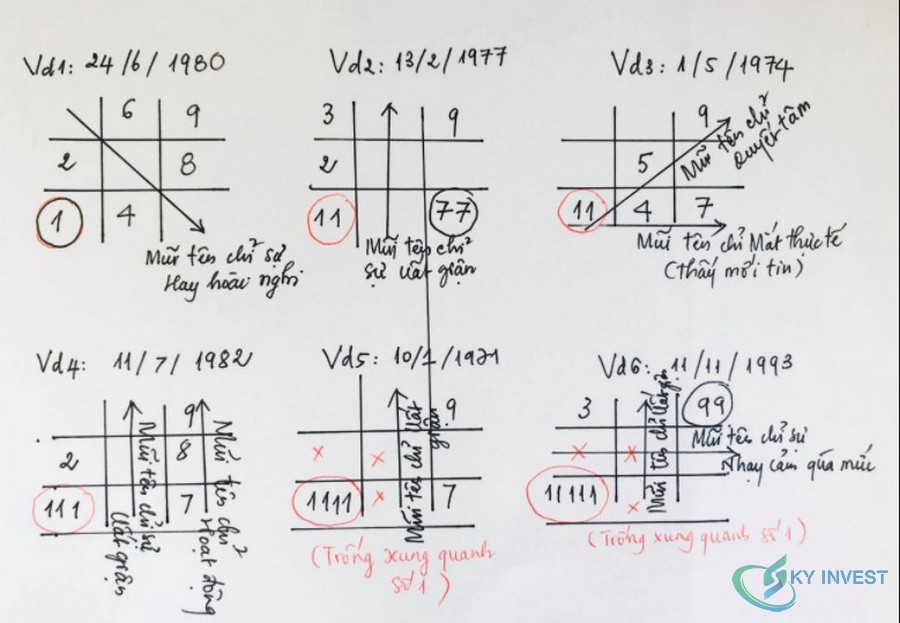 Vd1: 24/6/1980
6 9
2 8
1 4
Mũi tên chỉ sự
Hay hoài nghi
Vd2: 13/2/1977
3 9
2
11 77
Mũi tên chỉ
sự uất giận
Vd3: 1/5/1974
9
5
11 4 7
Mũi tên chỉ
quyết tâm
Mũi tên chỉ Mất thực tế
(thấy mới tin)
Vd4: 11/7/1982
9
2 8
111 7
Mũi tên chỉ sự
Uất giận
Mũi tên chỉ
Hoạt động
Vd5: 10/1/1971
9
x x
1111 x 7
Mũi tên chỉ uất
giận
(Trống xung quanh
số 1)
Vd6: 11/11/1993
3 99
x x
11111 x
Mũi tên chỉ Uất giận
Mũi tên chỉ sự
Nhạy cảm quá mức
(Trống xung quanh số 1)
SKY INVEST